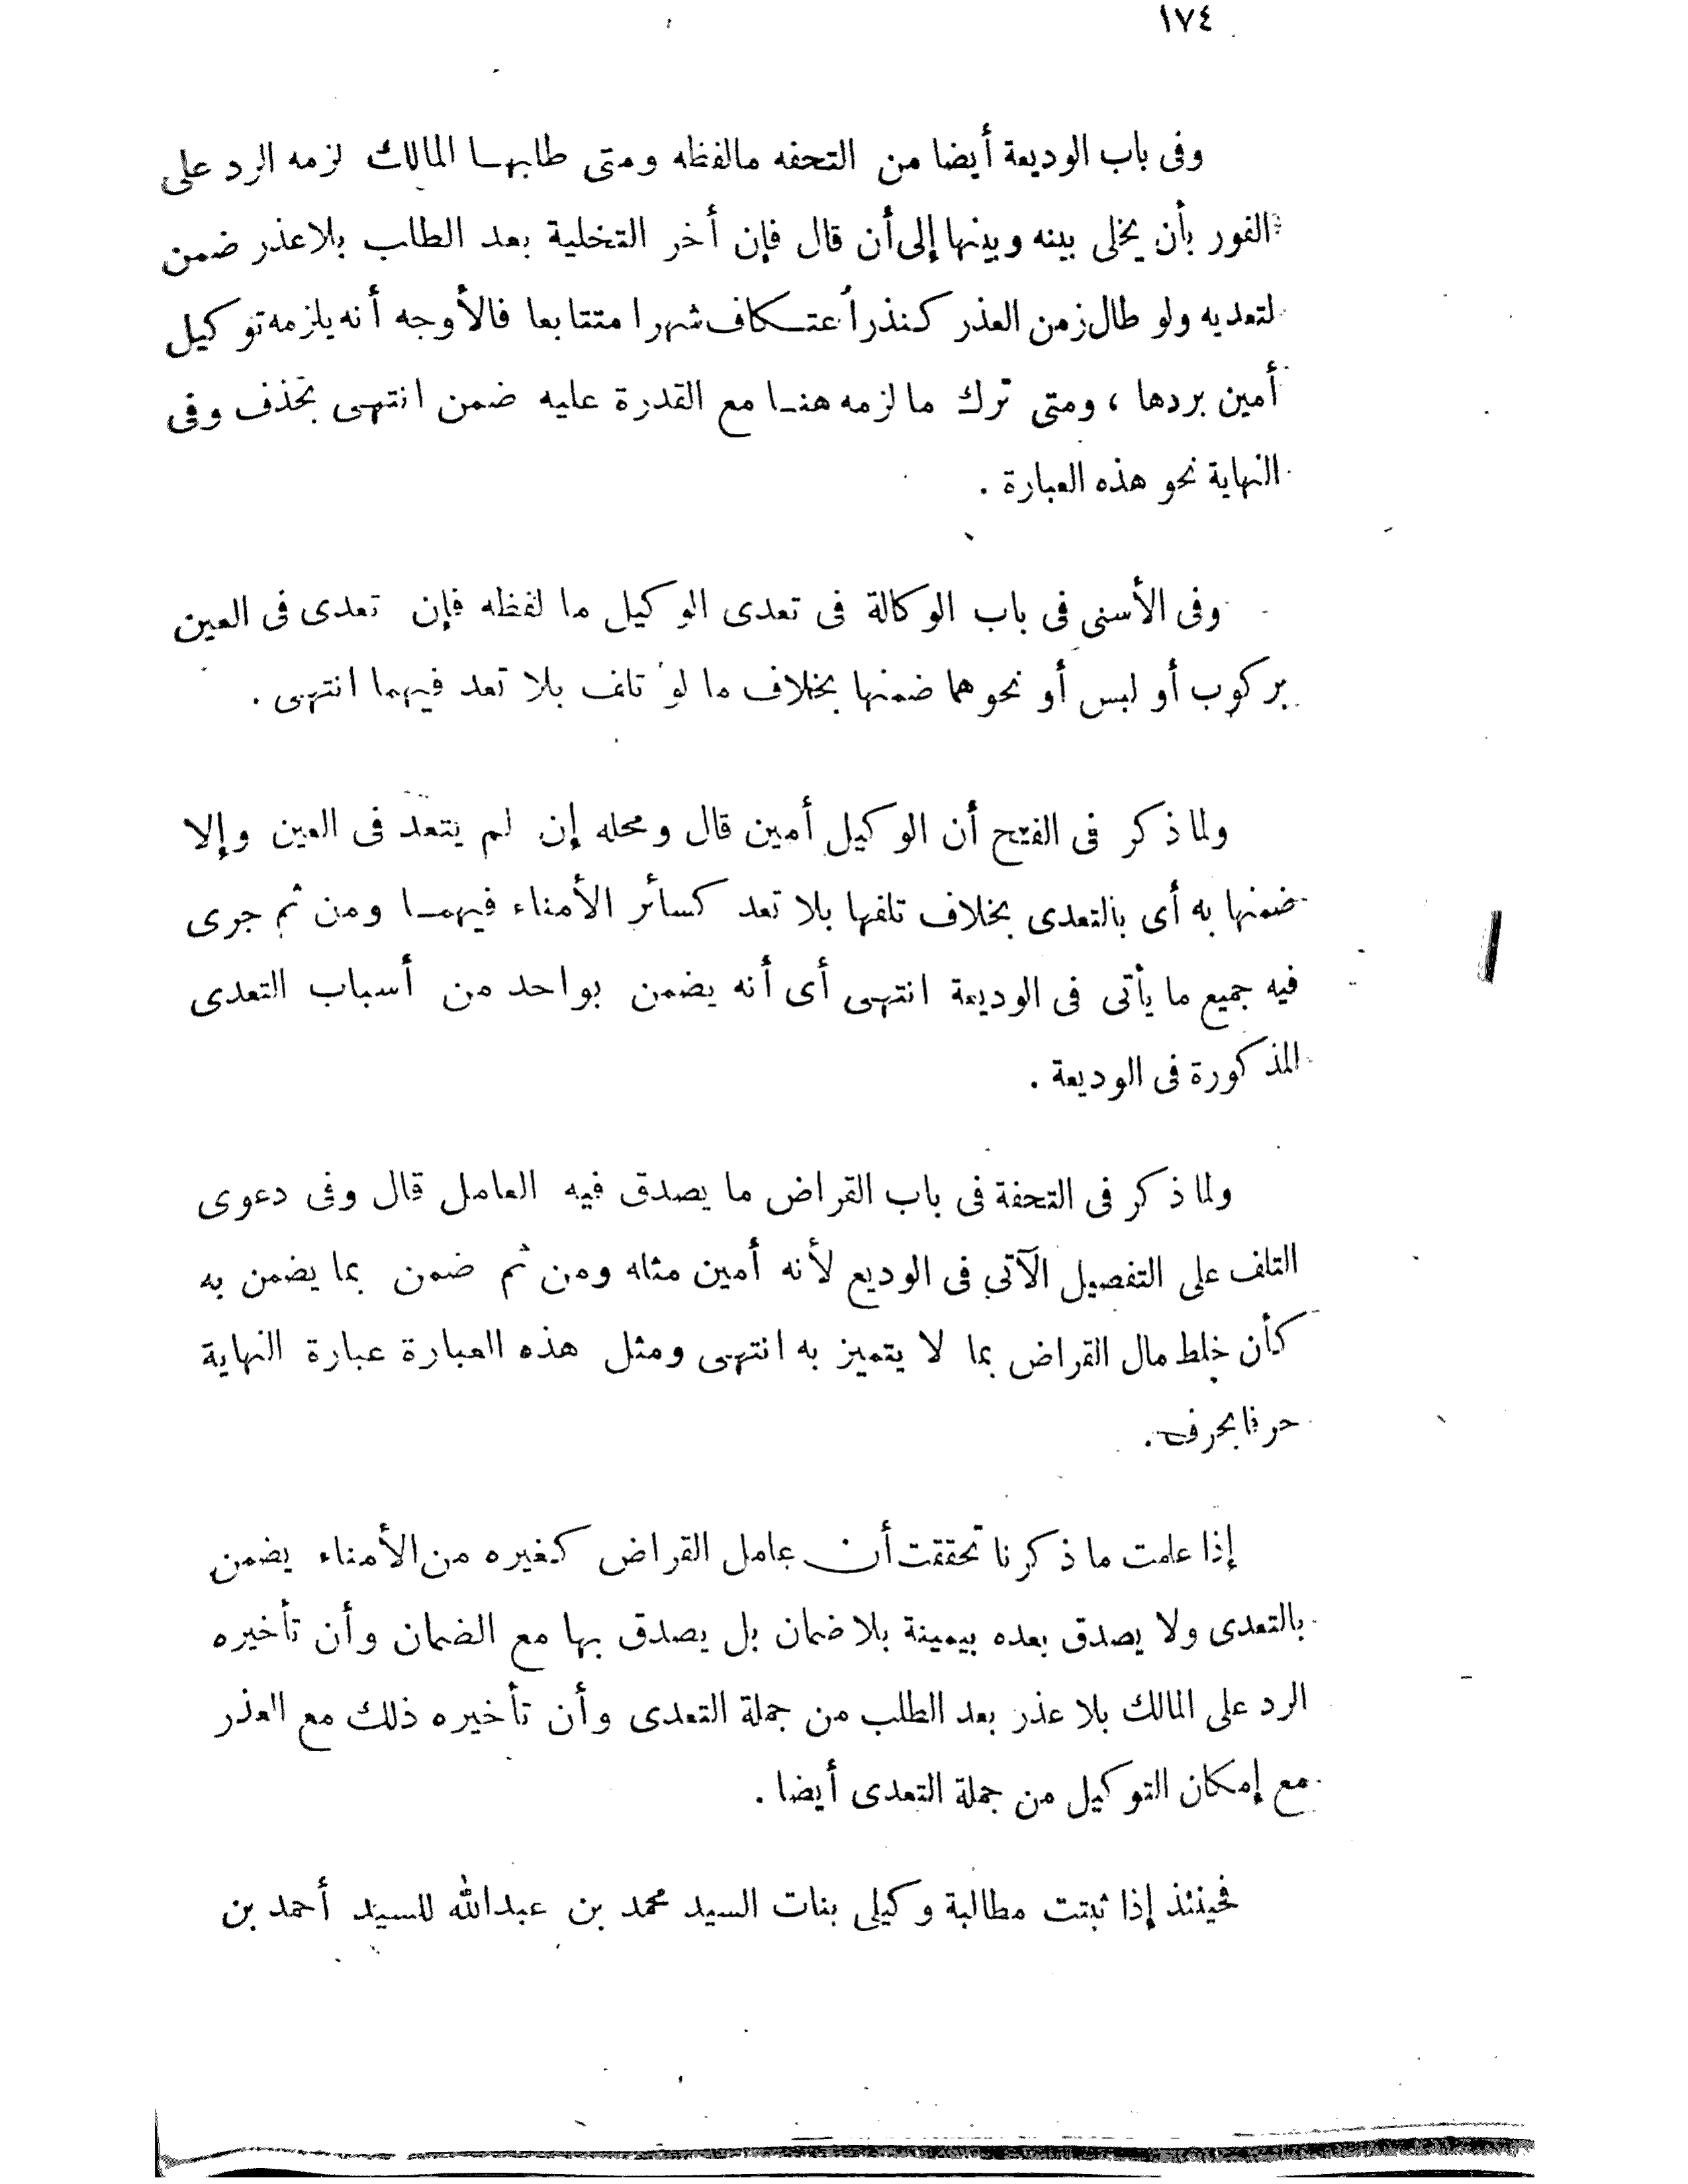 ١٧٤
وفى باب الوديعة أيضا من التحفه مالفظه ومتى طلبها المالك لزمه الرد على
الفور بأن يخلى بينه وبينها إلى أن قال فإن أخر التخلية بعد الطلب بلا عذر ضمن
لتعديه ولو طال زمن العذر كنذر اعتكاف شهرا متتابعا فالأوجه أنه يلزمه توكيل
أمين بردها ، ومتى ترك ما لزمه هنا مع القدرة عليه ضمن انتهى بحذف وفى
النهاية نحو هذه العبارة .
وفى الأسنى فى باب الوكالة فى تعدى الوكيل ما لفظه فإن تعدى فى العين
بركوب أو لبس أو نحوهما ضمنها بخلاف ما لو تلف بلا تعد فيهما انتهى .
ولما ذكر فى الفتح أن الوكيل أمين قال ومحله إن لم يتعد فى العين وإلا
ضمنها به أى بالتعدى بخلاف تلفها بلا تعد كسائر الأمناء فيهما ومن ثم جرى
فيه جميع ما يأتى فى الوديعة انتهى أى أنه يضمن بواحد من أسباب التعدى
المذكورة فى الوديعة .
ولما ذكر فى التحفة فى باب القراض ما يصدق فيه العامل قال وفى دعوى
التلف على التفصيل الآتى فى الوديع لأنه أمين مثله ومن ثم ضمن بما يضمن به
كأن خلط مال القراض بما لا يتميز به انتهى ومثل هذه العبارة عبارة النهاية
حرفا بحرف .
إذا علمت ما ذكرنا تحققت أن عامل القراض كغيره من الأمناء يضمن
بالتعدى ولا يصدق بعده بيمينة بلا ضمان بل يصدق بها مع الضمان وأن تأخيره
الرد على المالك بلا عذر بعد الطلب من جملة التعدى وأن تأخيره ذلك مع العذر
مع إمكان التوكيل من جملة التعدى أيضا .
فحينئذ إذا ثبتت مطالبة وكيلى بنات السيد محمد بن عبدالله للسيد أحمد بن